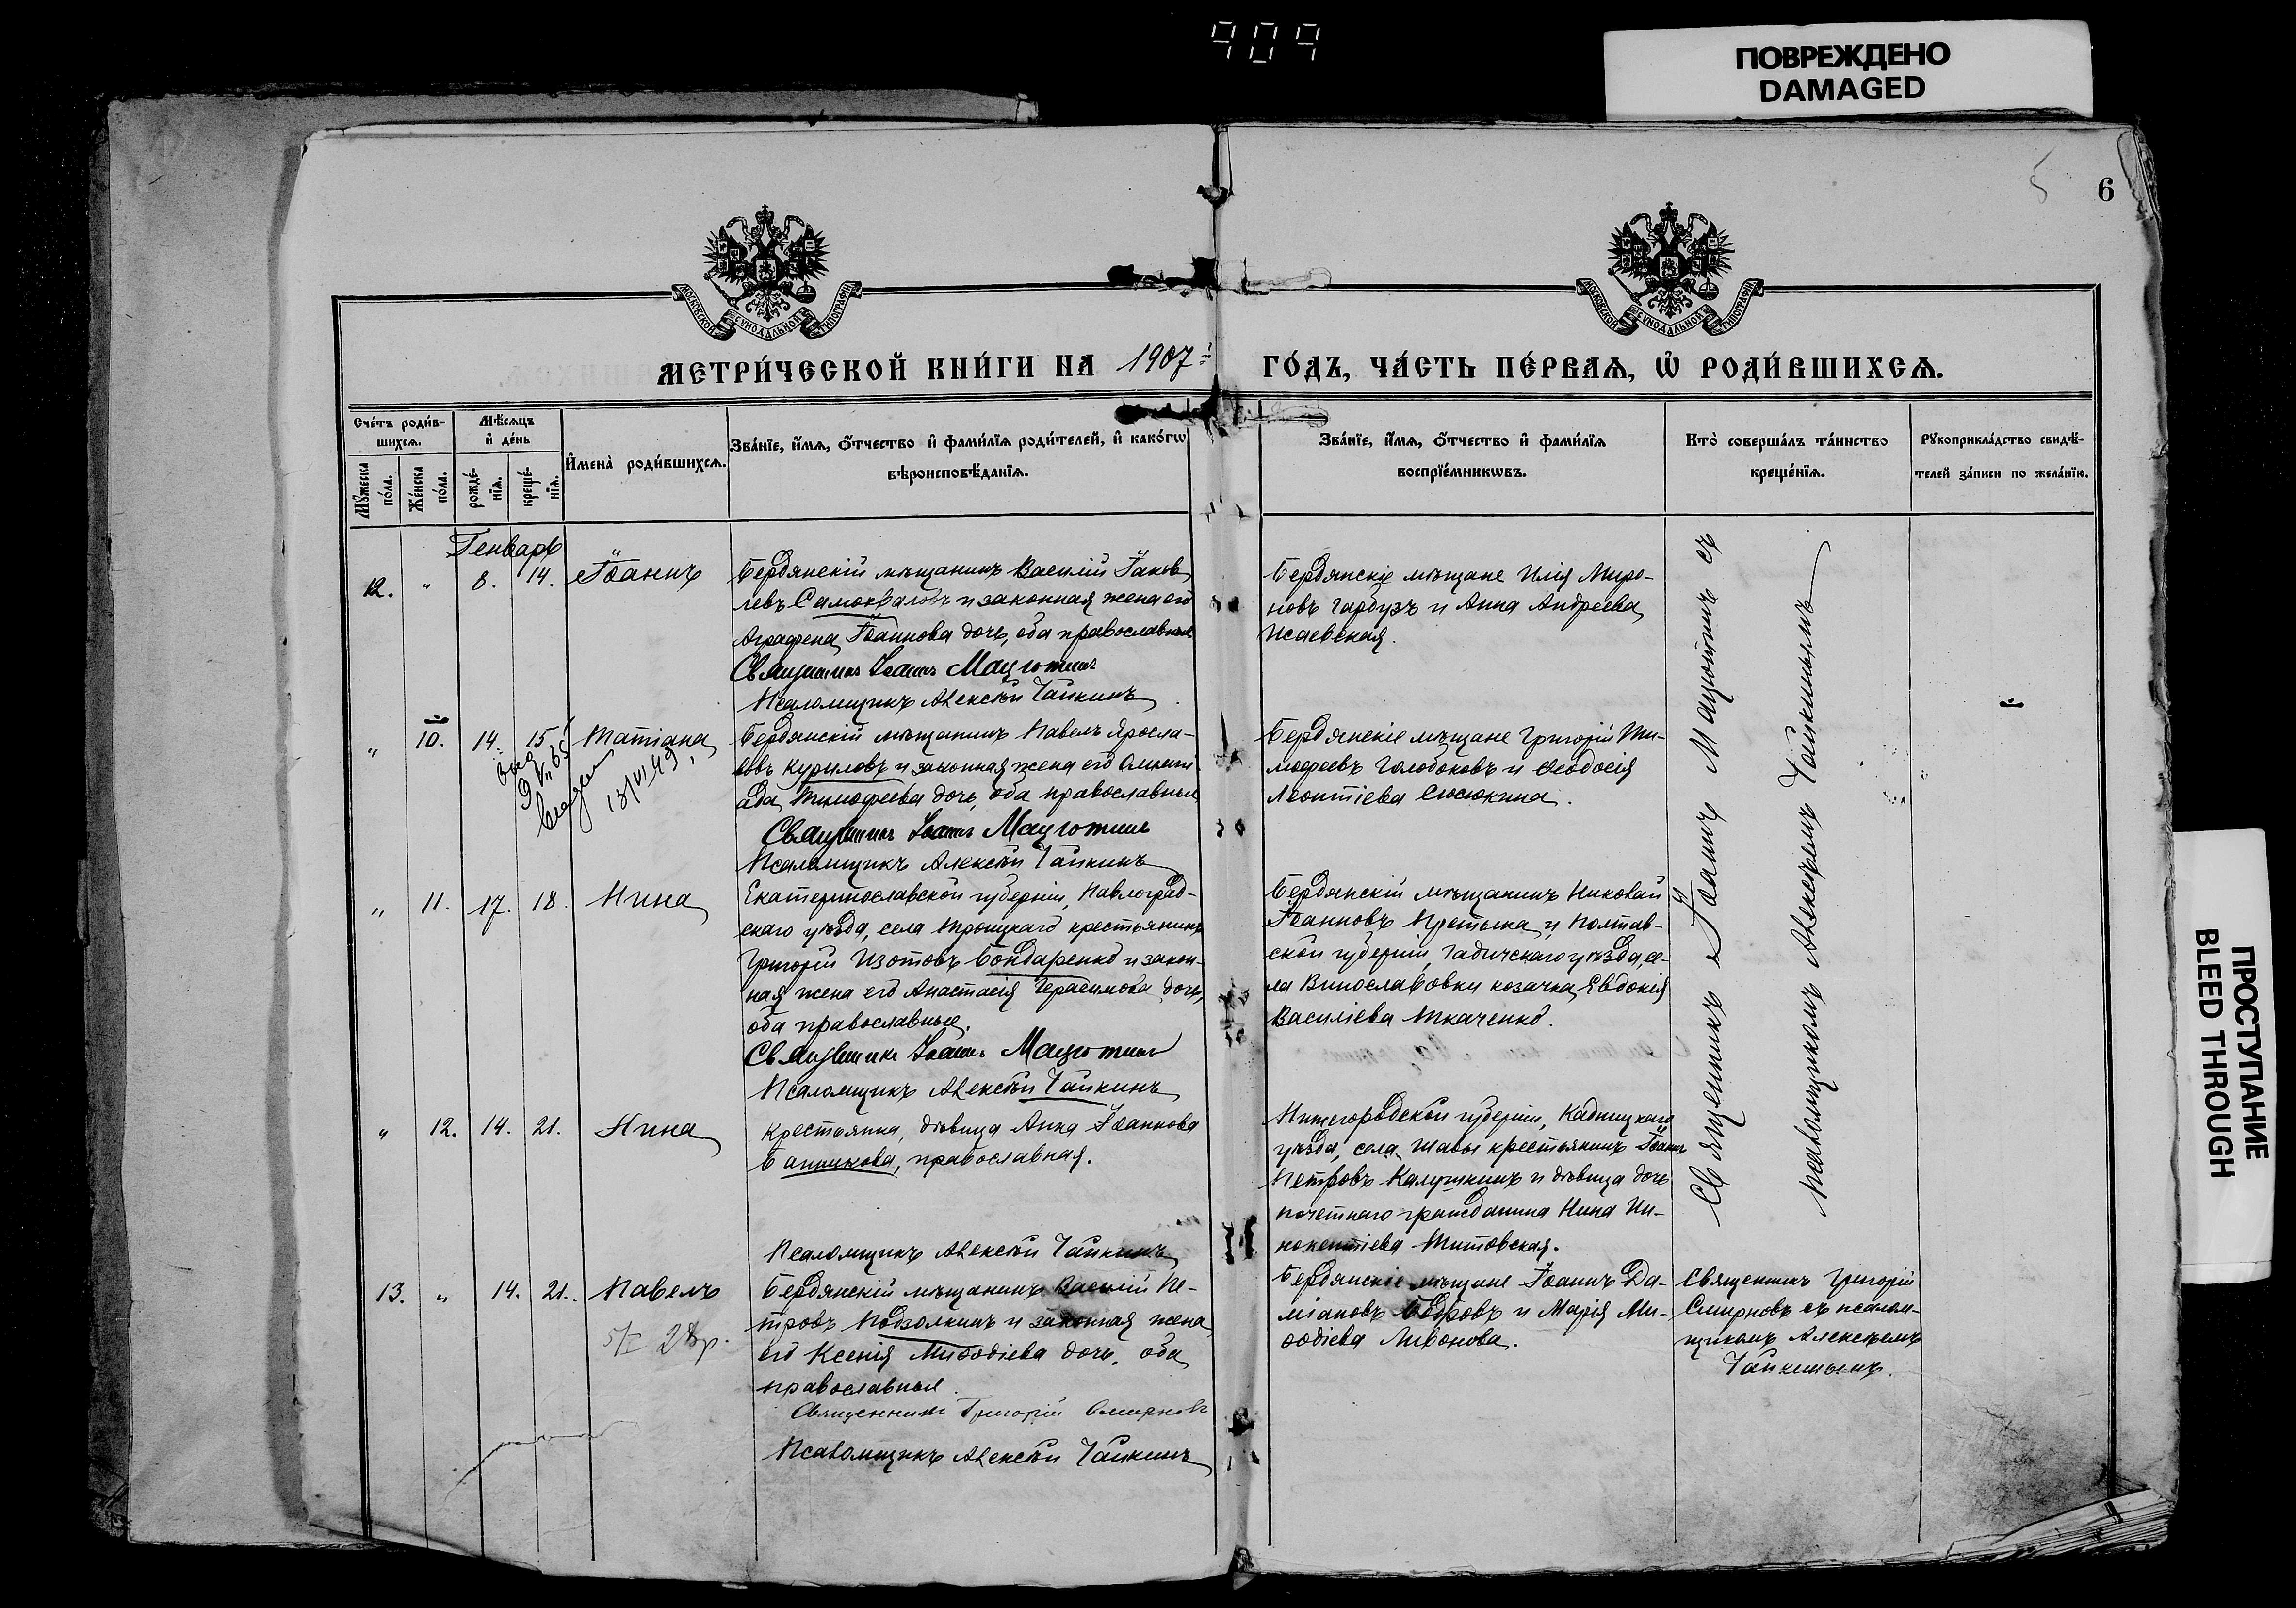 909
ПОВРЕЖДЕНО
DAMAGED
5
6
МОСКОВСКОЙ СѴНОДАЛЬНОЙ ТИПОГРАФІИ
МОСКОВСКОЙ СѴНОДАЛЬНОЙ ТИПОГРАФІИ
МЕТРИ́ЧЕСКОЙ КНИ́ГИ НА 1907 ГО́ДЪ, ЧА́СТЬ ПЕ́РВАѦ, Ѡ҆ РОДИ́ВШИХСѦ.
Сче́тъ роди́в-
шихсѧ.
Мꙋ́жеска по́ла.
Же́нска по́ла.
Мѣ́сѧцъ
и҆ де́нь
рожде́-
нїѧ.
креще́-
нїѧ.
И҆мена̀ роди́вшихсѧ.
Зва́нїе, и҆́мѧ, ѻ҆́тчество и҆ фами́лїѧ роди́телей, и҆ како́гѡ
вѣроисповѣ́данїѧ.
Зва́нїе, и҆́мѧ, ѻ҆́тчество и҆ фами́лїѧ
воспрїе́мникѡвъ.
Кто̀ соверша́лъ та́инство
креще́нїѧ.
Рꙋкоприкла́дство свидѣ́-
телей за́писи по жела́нїю.
Генварь
12. " 8. 14. Іоаннъ
Бердянскій мѣщанинъ Василій Іаков
левъ Самохваловъ и законная жена его
Аграфена Іоаннова дочь, оба православные.
Священникъ Іоаннъ Мацютинъ
Псаломщикъ Алексѣй Чайкинъ
Бердянскіе мѣщане Илія Миро-
новъ Гарбузъ и Анна Андреева
Исаевская.
" 10. 14. 15 Татіана
13/VI 49
Бердянскій мѣщанинъ Павелъ Яросла-
вовъ Куриловъ и законная жена его
Тимофеева дочь, оба православные
Священникъ Іоаннъ Мацютинъ
Псаломщикъ Алексѣй Чайкинъ
Бердянскіе мѣщане Григорій Ти-
мофеевъ Голобоковъ и Ѳеодосія
Леонтіева Сюсюкина.
" 11. 17. 18. Нина
Екатеринославской губерніи, Павлоград-
скаго уѣзда, села Троицкаго крестьянинъ
Григорій Изотовъ Бондаренко и закон-
ная жена его Анастасія Герасимова дочь,
оба православные.
Священникъ Іоаннъ Мацютинъ
Псаломщикъ Алексѣй Чайкинъ
Бердянскій мѣщанинъ Николай
Іоанновъ и Полтав-
ской губерніи, Гадичскаго уѣзда, се-
ла Виславовки козачка Евдокія
Василіева Ткаченко.
" 12. 14. 21. Нина
Крестьянка, дѣвица Анна Іоаннова
Банникова, православная.
Псаломщикъ Алексѣй Чайкинъ
Нижегородской губерніи,
уѣзда, села Шавы крестьянинъ Іоаннъ
Петровъ Калушкинъ и дѣвица дочь
почетнаго гражданина Нина Ин-
нокентіева Титовская.
Священникъ Іоаннъ Мацютинъ съ
псаломщикомъ Алексѣемъ Чайкинымъ
13. " 14. 21. Павелъ
Бердянскій мѣщанинъ Василій Пе-
тровъ Подзолкинъ и законная жена
его Ксенія Меѳодіева дочь, оба
православные.
Священникъ Григорій Смирновъ
Псаломщикъ Алексѣй Чайкинъ
Бердянскіе мѣщане Іоаннъ Да-
міановъ Бобровъ и Марія Ми-
ѳодіева Ливонова.
Священникъ Григорій
Смирновъ съ псалом-
щикомъ Алексѣемъ
Чайкинымъ.
ПРОСТУПАНИЕ
BLEED THROUGH